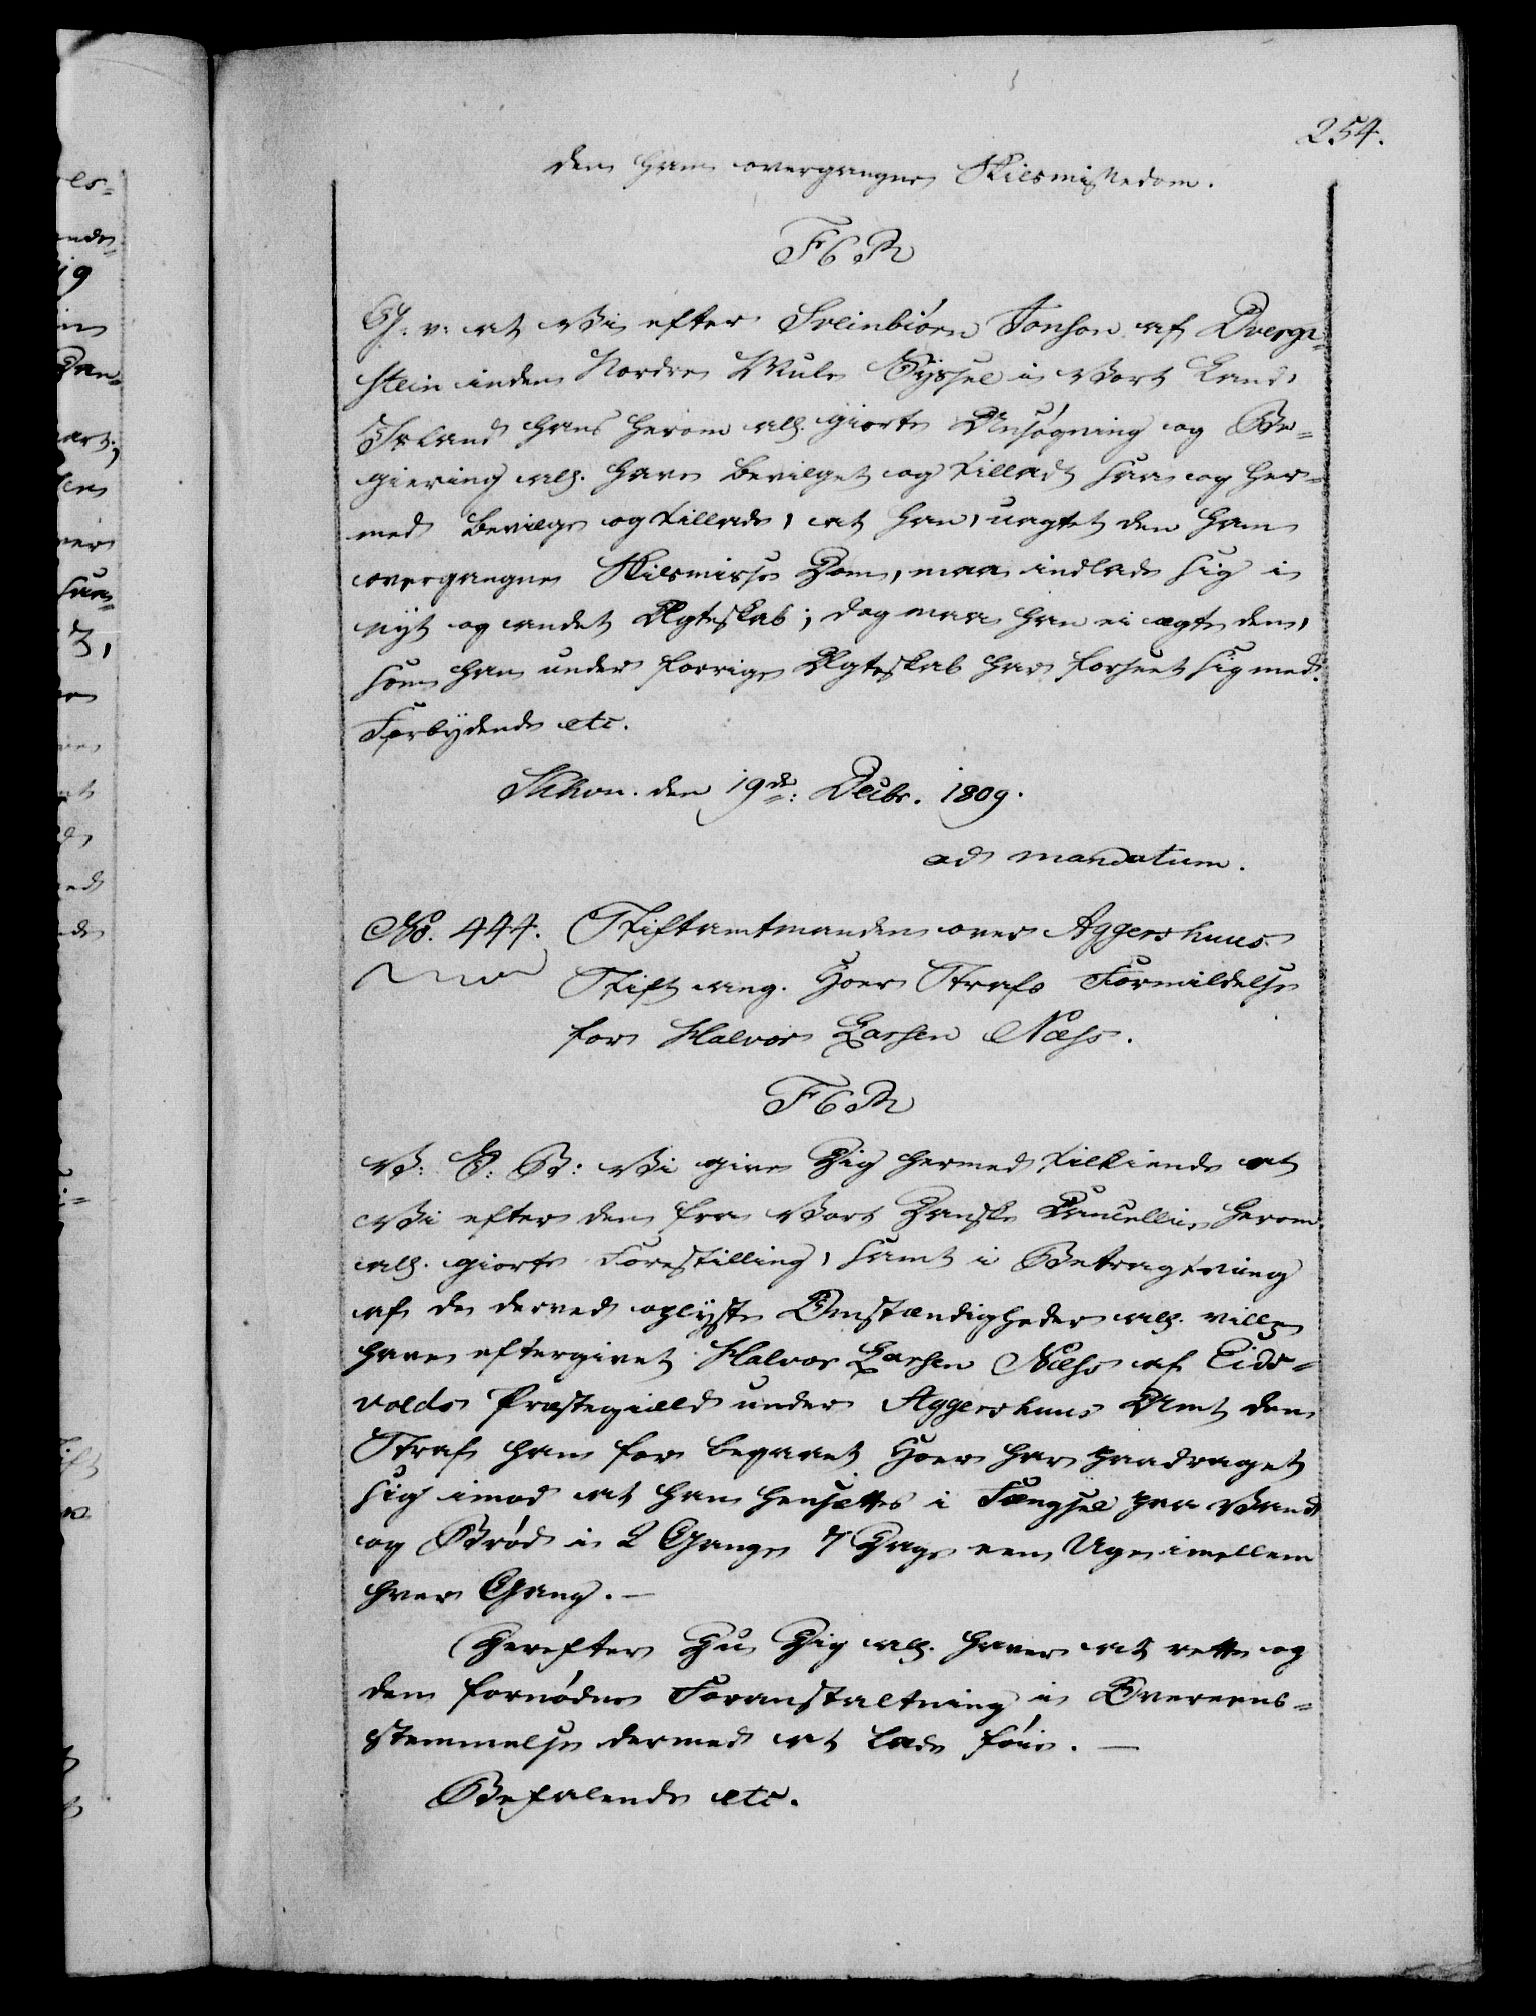 254.
den ham overgangne Skilsmissedom.
F6R
G. v: at Vi efter Sveinbiörn Jonson af Dverga-
stein inden Nordre Mule Syssel i Vort Land
Island hans herom all. giorte Ansøgning og Be-
giering all. have bevilget og tilladt saa og her-
med bevilge og tillade, at han, uagtet den ham
overgangne Skilsmisse Dom, maa indlade sig i
nyt og andet Ægteskab; dog maa han ei ægte den,
som han under forrige Ægteskab har forseet sig med.
Forbydende etc.
Khvn. den 19de: Decbr. 1809.
ad mandatum.
No. 444. Stiftamtmanden over Aggershuus
Stift ang. Hoer Straffs Formildelse
for Halvor Larsen Næss.
F6R
V: G: B: Vi give Dig hermed tilkiende at
Vi efter den fra Vort Danske Cancellie herom
all. giorte Forestilling, samt i Betragtning
af de derved oplyste Omstændigheder all. ville
have eftergivet Halvor Larsen Næss af Eids-
volds Præstegield under Aggershuus Amt den
Straf han for begaaet Hoer har paadraget
sig imod at han hensættes i Fængsel paa Vand
og Brød i 2 Gange 7 Dage een Uge imellem
hver Gang. —
Derefter Du Dig all. haver at rette og
den fornødne Foranstaltning i Overeens-
stemmelse dermed at lade føie. —
Befalende etc.